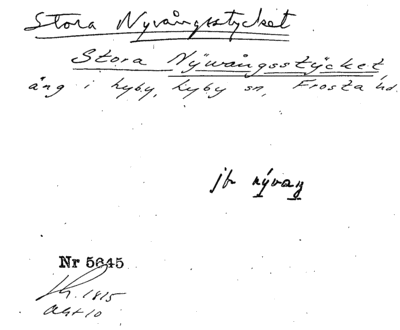 Stora Nyvångsstycket
Stora Nÿwångsstÿcket
äng i Lyby, Lyby sn, Frosta hd.
jfr nývaŋ
Nr 5645
Lh. 1815
Akt 10